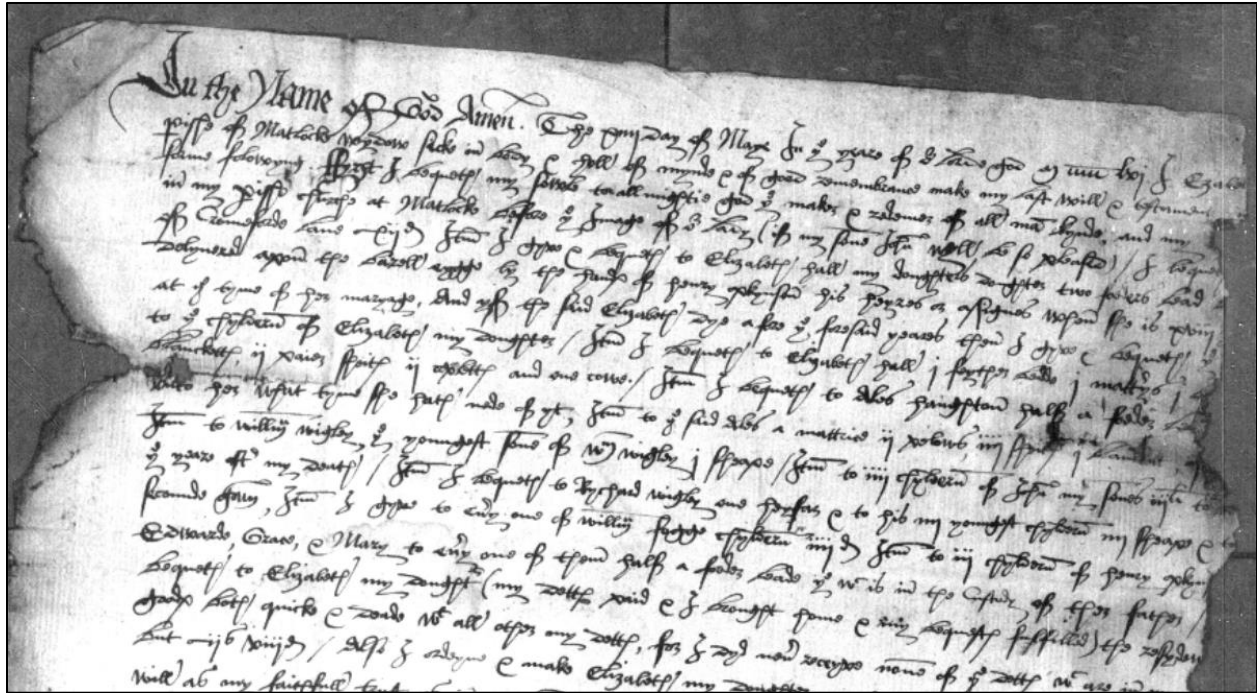 In the Name of God Amen. The xviii Day of Maye In ye yeare of or lorde god m lvj I Elizabeth
pisshe of Matlocke wyddow sicke in body & holl of mynde & of good remembrance make my last will & testament
forme folowyng ffyrst I bequeth my sowle to allmightie god ye maker & redemer of all mākynde, and my
in my pisshe churche at Matlocke before ye Image of or lady (if my sone Jhn will be so pleased) / I bequeth
of Cromeforde lane xijd Itm I gyve & bequeth to Elizabeth hall my doughters doughter two foders lead
Delyuerd apon the barell egge by the hands of henry his heyres or assignes when she is xviij
at ye tyme of her maryage, And yf the said Elizabeth Dye afore ye foresaid yeares then I gyve & bequeth
to ye chyldern of Elizabeth my doughter / Itm I bequeth to Elizabeth hall j fether bedde j mattrys
blancketts ij paier sheits ij and one cowe. / Itm I bequeth to Ales haughton half a foder
unto her what tyme she hath nede of yt, Itm to ye said Ales a mattrice ij pelows iiij j
Itm to willm wigley ye youngest sone of wm wigley j sheape / Itm to iiij chyldern of Jhn my sones iiijli to
ye yeare aftr my death / Itm I bequeth to Rychard wigley one heyfar & to his iiij youngest chyldern iiij sheape & to
seconde gown, Itm I gyve to evry one of willm fogge chyldern iiijd Itm to iij chyldern of henry
Edwarde, Grace, & Mary to evry one of them half a foder leade ye wch is in the Custody of ther father /
bequeth to Elizabeth my doughtr (my detts paid & I brought home & my bequests fulfilled) the residew
goods both quicke & deade wt all other my detts, for I dyd nevr receyve none of ye detts wch are in
but viijd / Also I ordeyne & make Elizabeth my doughter
will as my faithfull